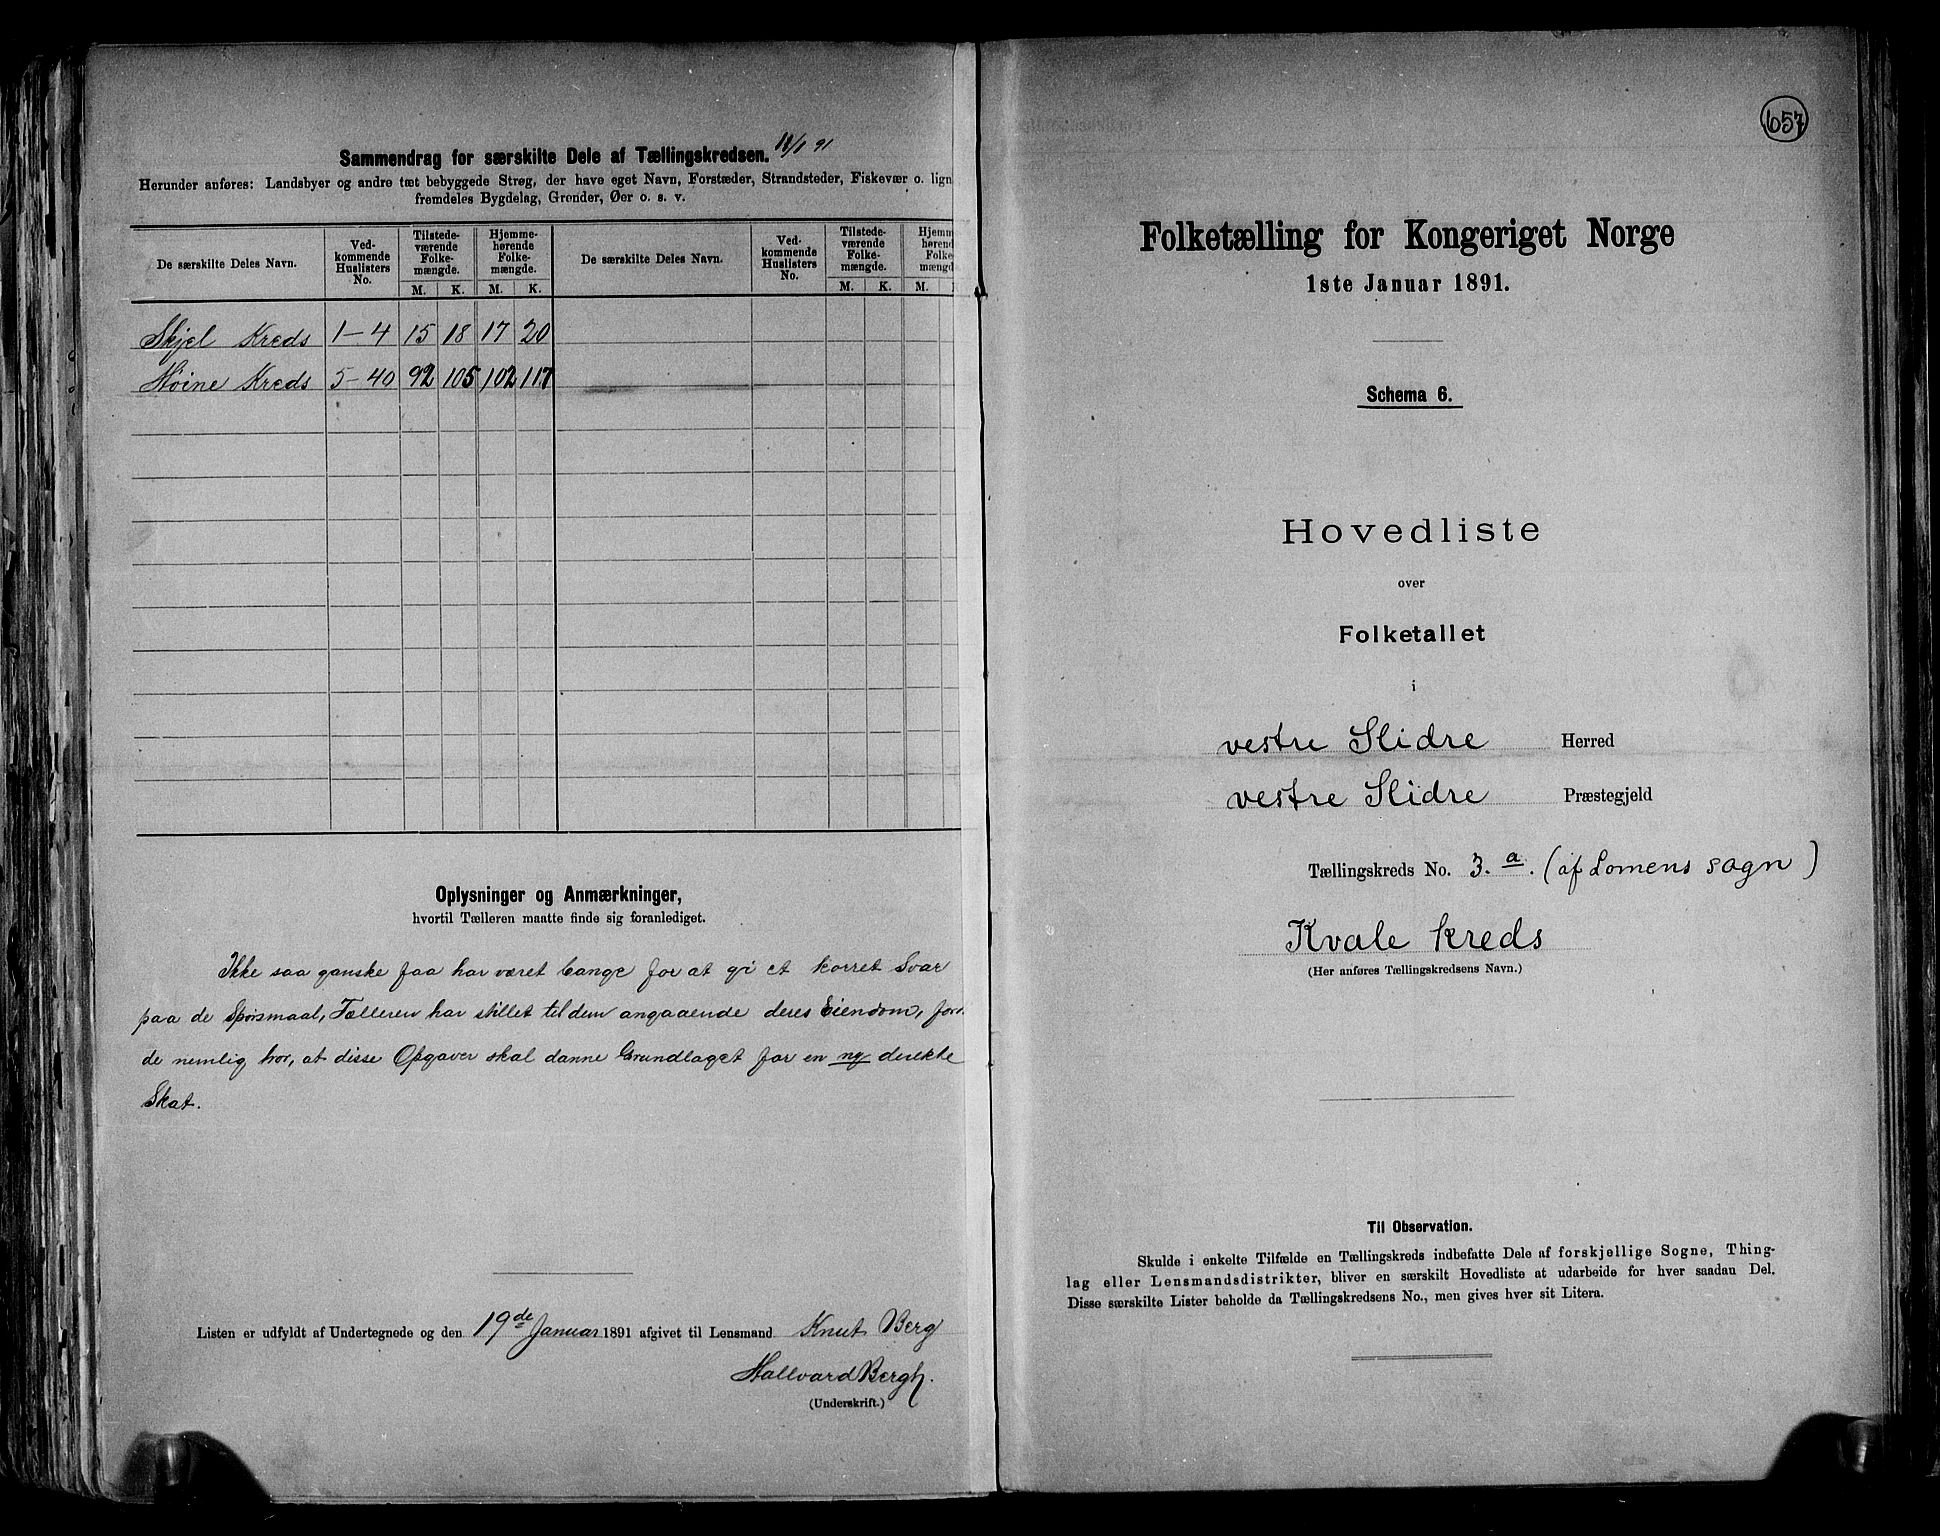 Sammendrag for særskilte Dele af Tællingskredsen.
Herunder anføres: Landsbyer og andre tæt bebyggede Strøg, der have eget Navn, Forstæder, Strandsteder, Fiskevær o. lign
fremdeles Bygdelag, Grender, Øer o. s. v.
De særskilte Deles Navn. Ved-kommende Huslisters No. Tilstede-værende Folke-mængde. Hjemme-hørende Folke-mængde. De særskilte Deles Navn. Ved-kommende Huslisters No. Tilstede-værende Folke-mængde. Hjemm hørend Folke mængd
M. K. M. K. M. K. M.
Skjel Kreds 1-4 15 18 17 20
Høine Kreds 5-40 92 105 102 117
Oplysninger og Anmærkninger,
hvortil Tælleren maatte finde sig foranlediget.
Ikke saa ganske faa har været bange for at gi et korret Svar
paa de Spörsmaal, Tælleren har stillet til dem angaaende deres Eiendom, for
de nemlig tror, at disse Opgaver skal danne Grundlaget for en ny direkte
Skat.
Listen er udfyldt af Undertegnede og den 19de Januar 1891 afgivet til Lensmand Knut Berg
Hallvard Bergh.
(Underskrift.)
657
Folketælling for Kongeriget Norge
1ste Januar 1891.
Schema 6.
Hovedliste
over
Folketallet
i
vestre Slidre Herred
vestre Slidre Præstegjeld
Tællingskreds No. 3.a. (af Lomens sogn)
Kvale kreds
(Her anføres Tællingskredsens Navn.)
Til Observation.
Skulde i enkelte Tilfælde en Tællingskreds indbefatte Dele af forskjellige Sogne, Thing-
lag eller Lensmandsdistrikter, bliver en særskilt Hovedliste at udarbeide for hver saadan Del.
Disse særskilte Lister beholde da Tællingskredsens No., men gives hver sit Litera.